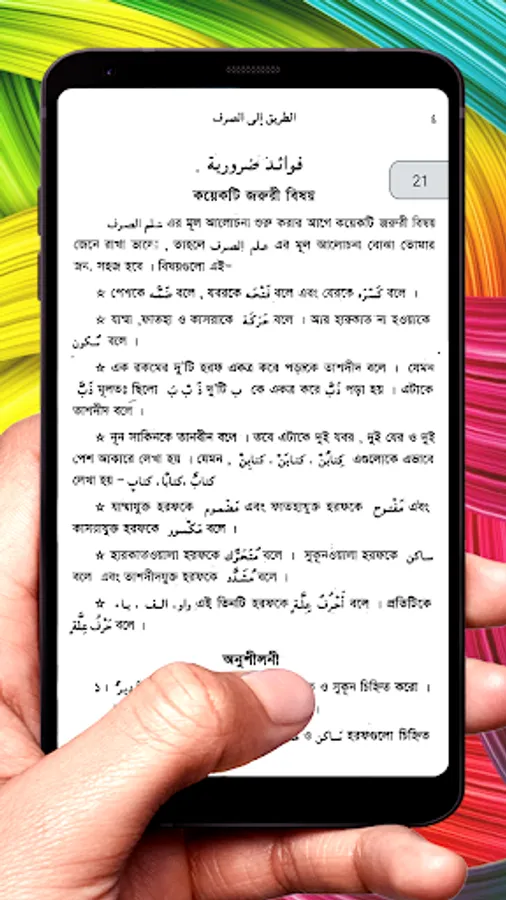 الطريق إلى الصرف ٤
فوائد ضرورية .
21
কয়েকটি জরুরী বিষয়
علم الصرف এর মূল আলোচনা শুরু করার আগে কয়েকটি জরুরী বিষয়
জেনে রাখা ভালো, তাহলে علم الصرف এর মূল আলোচনা বোঝা তোমার
জন্য সহজ হবে । বিষয়গুলো এই-
☆ পেশকে ضَمَّة বলে , যবরকে فَتْحَة বলে এবং যেরকে كَسْرَة বলে ।
☆ যাম্মা ,ফাতহা ও কাসরাকে حَرَكَة বলে । আর হারকাত না হওয়াকে
سُكون বলে ।
☆ এক রকমের দু'টি হরফ একত্র করে পড়াকে তাশদীদ বলে । যেমন
ذَبَّ মূলতঃ ছিলো ذَ بْ بَ দু'টি ب কে একত্র করে ذَبَّ পড়া হয় । এটাকে
তাশদীদ বলে ।
☆ নূন সাকিনকে তানবীন বলে । তবে এটাকে দুই যবর , দুই যের ও দুই
পেশ আকারে লেখা হয় । যেমন , كِتابُنْ ، كتابَنْ ، كتابِنْ এগুলোকে এভাবে
লেখা হয় - كتابٌ ،كتابًا، كتابٍ
☆ যাম্মাযুক্ত হরফকে مَضْموم এবং ফাতহাযুক্ত হরফকে مَفْتوح এবং
কাসরাযুক্ত হরফকে مَكْسور বলে ।
☆ হারকাতওয়ালা হরফকে مُتَحَرِّك বলে । সুকূনওয়ালা হরফকে ساكن
বলে এবং তাশদীদযুক্ত হরফকে مُشَدَّد বলে ।
☆ واو، الف ، ياء এই তিনটি হরফকে أَحْرُفُ عِلَّةٍ বলে । প্রতিটিকে
حَرْفُ عِلَّةٍ বলে ।
অনুশীলনী
১। ও সুকূন চিহ্নিত করো ।
ও ساكن হরফগুলো চিহ্নিত